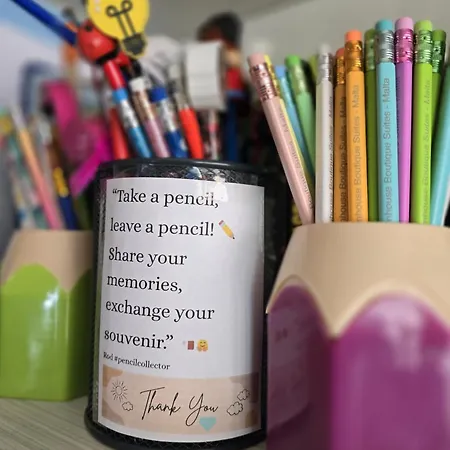 “Take a pencil,
leave a pencil! ✏️
Share your
memories,
exchange your
souvenir.” 🇲🇹🤗
Rod #pencilcollector
Thank You
house Boutique Suites - Malta
house Boutique Suites - Malta